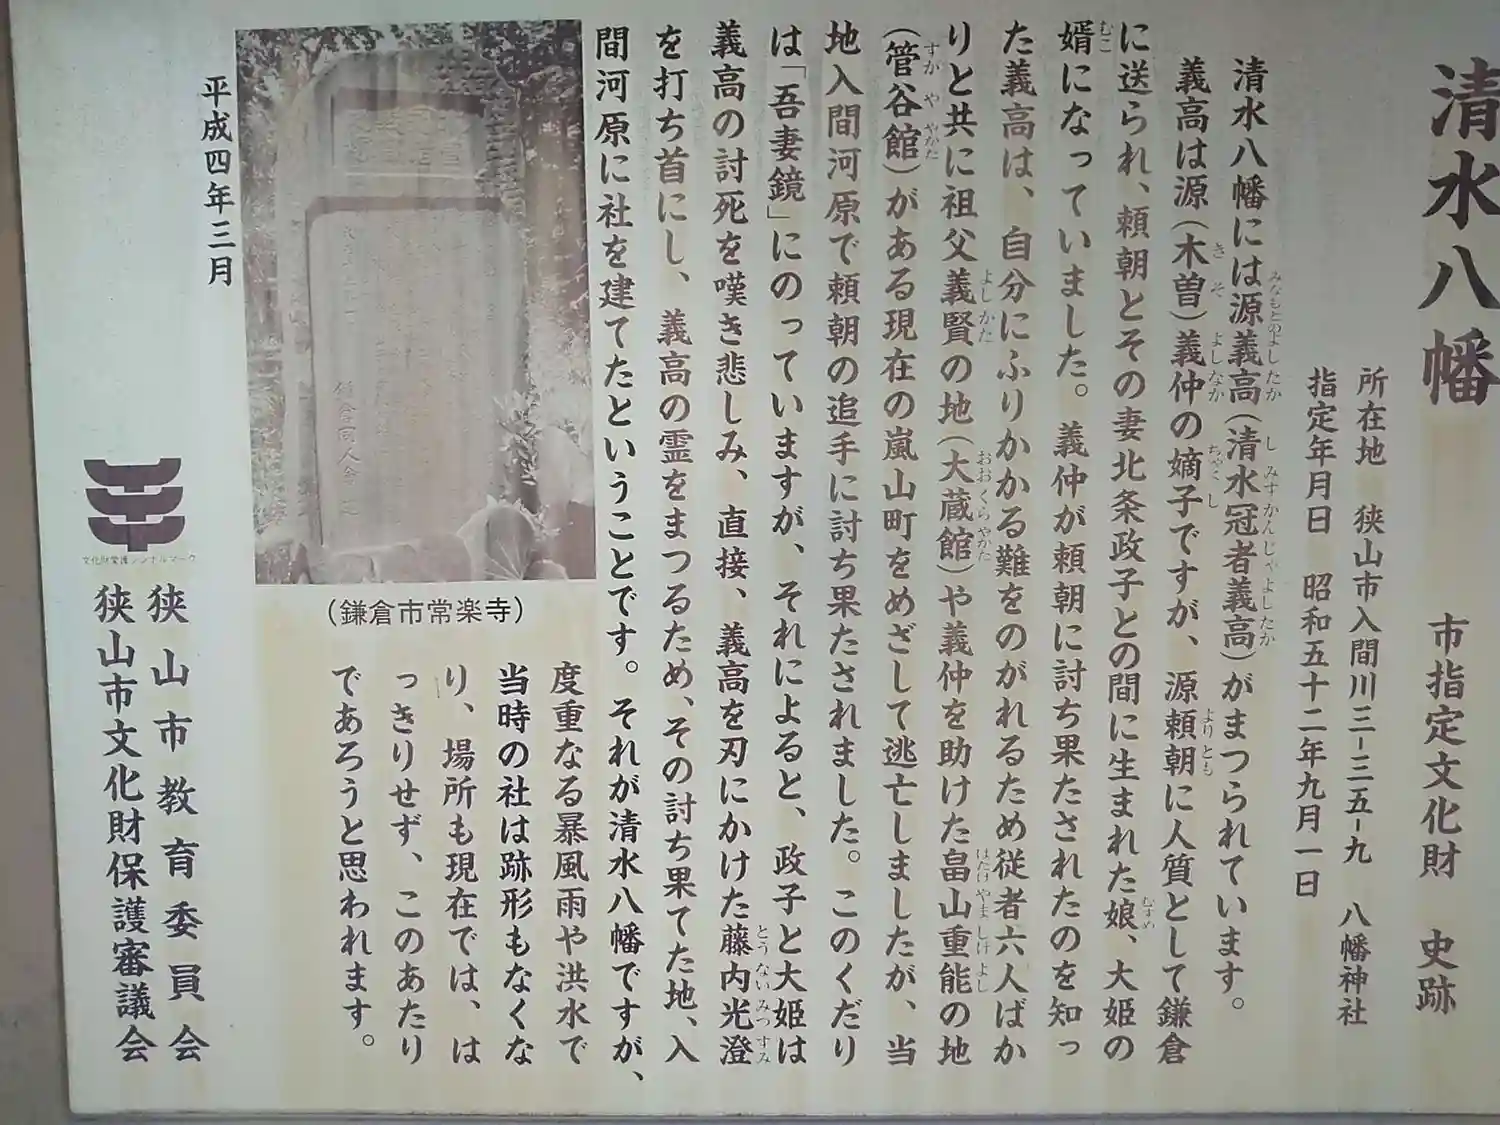 清水八幡　市指定文化財　史跡
所在地　狭山市入間川三-三五-九　八幡神社
指定年月日　昭和五十二年九月一日
清水八幡には源義高(清水冠者義高)がまつられています。
義高は源(木曽)義仲の嫡子ですが、源頼朝に人質として鎌倉
に送られ、頼朝とその妻北条政子との間に生まれた娘、大姫の
婿になっていました。義仲が頼朝に討ち果たされたのを知っ
た義高は、自分にふりかかる難をのがれるため従者六人ばか
りと共に祖父義賢の地(大蔵館)や義仲を助けた畠山重能の地
(管谷館)がある現在の嵐山町をめざして逃亡しましたが、当
地入間河原で頼朝の追手に討ち果たされました。このくだり
は「吾妻鏡」にのっていますが、それによると、政子と大姫は
義高の討死を嘆き悲しみ、直接、義高を刃にかけた藤内光澄
を打ち首にし、義高の霊をまつるため、その討ち果てた地、入
間河原に社を建てたということです。それが清水八幡ですが、
度重なる暴風雨や洪水で
当時の社は跡形もなくな
り、場所も現在では、は
っきりせず、このあたり
であろうと思われます。
(鎌倉市常楽寺)
平成四年三月
文化財愛護シンボルマーク
狭山市教育委員会
狭山市文化財保護審議会